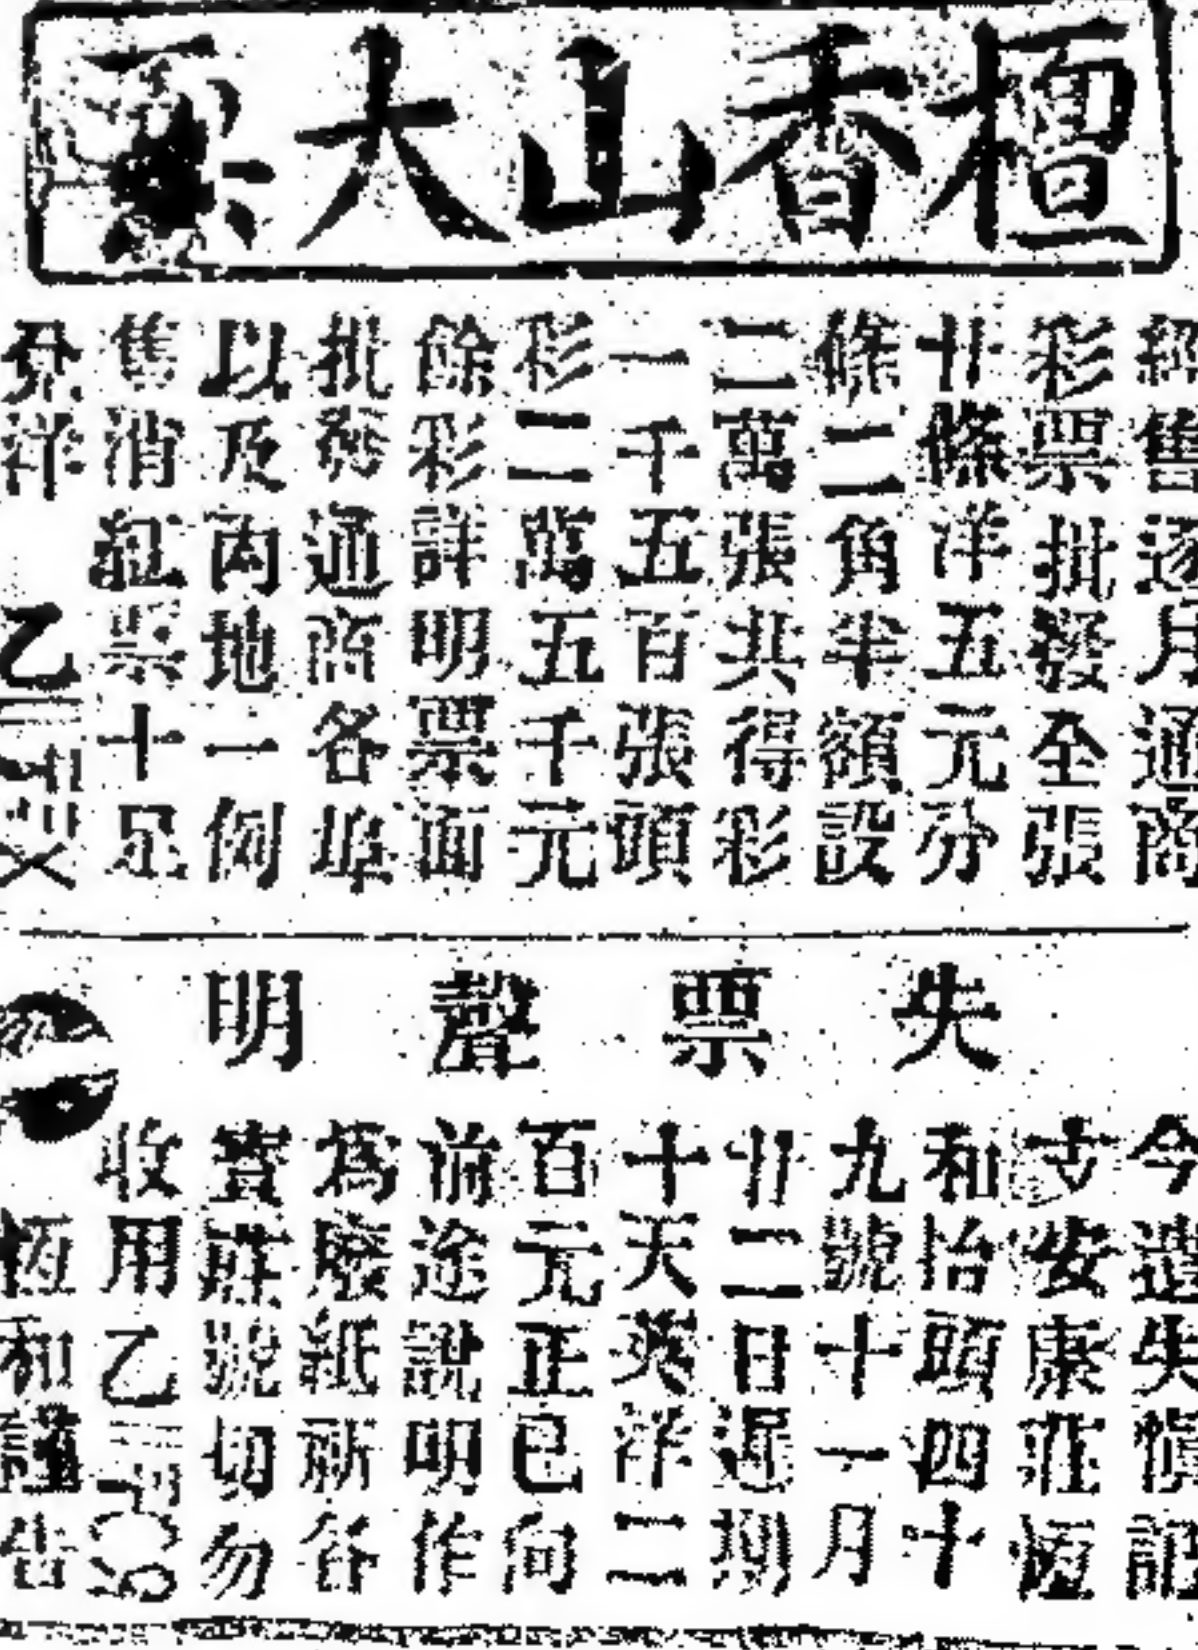 檀香山大票
經售逐月通商
彩票批發全張
廿條洋五元分
條二角半額設
二萬張共得彩
一千五百張頭
彩二萬五千元
餘彩詳明票面
批發通商各埠
以及內地一例
售消 票十足
兌洋 乙
失票聲明
今遺失慎記
支安康莊恆
和怡頭四十
九號十一月
廿二日遲期
十天英洋二
百元正已向
前途說明作
為廢紙新各
寶莊號切勿
收用乙
恆和謹告